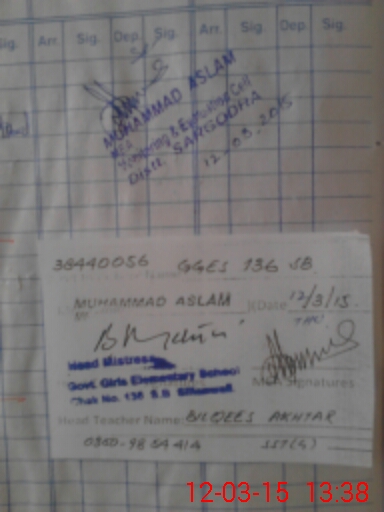 Sig. Arr. Sig. Dep. Sig. Arr. Sig. Dep. Sig.
MUHAMMAD ASLAM
MEA
Monitoring & Evaluation Cell
Distt. SARGODHA
12.03.2015
38440056 GGES 136 SB
MUHAMMAD ASLAM Date 12/3/15
THU
Head Mistress
Govt. Girls Elementary School
Chak No. 136 S.B Sillanwali
MEA Signatures
Head Teacher Name: BILQEES AKHTAR
SST(G)
12-03-15 13:38